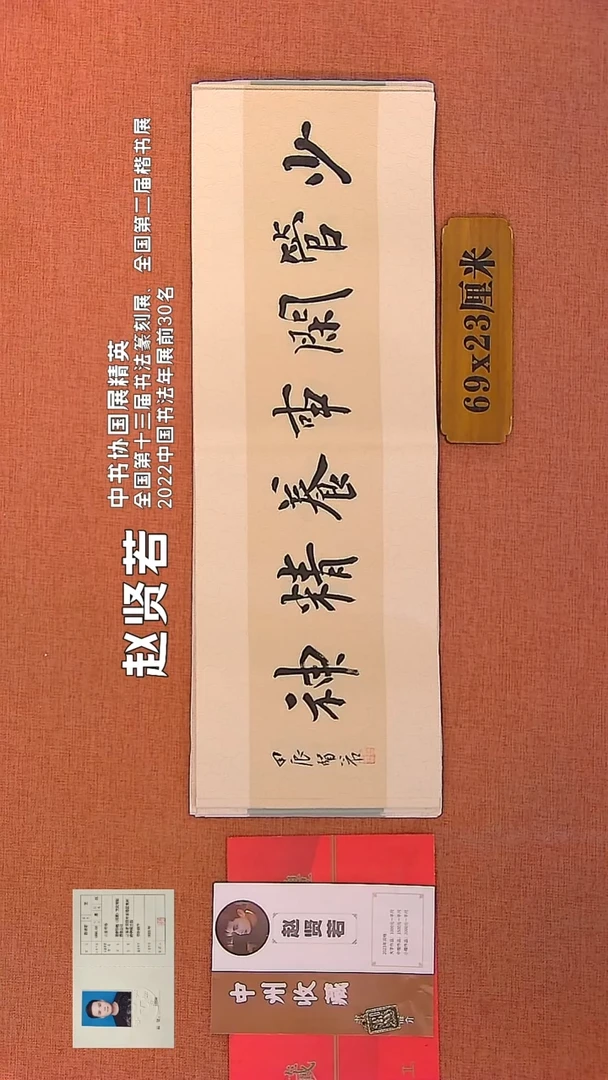 赵贤若
中书协国展精英
全国第十三届书法篆刻展、全国第二届楷书展
2022中国书法年展前30名
少管閑事養精神
甲辰
賢若
69x23厘米
赵贤若
中州收藏